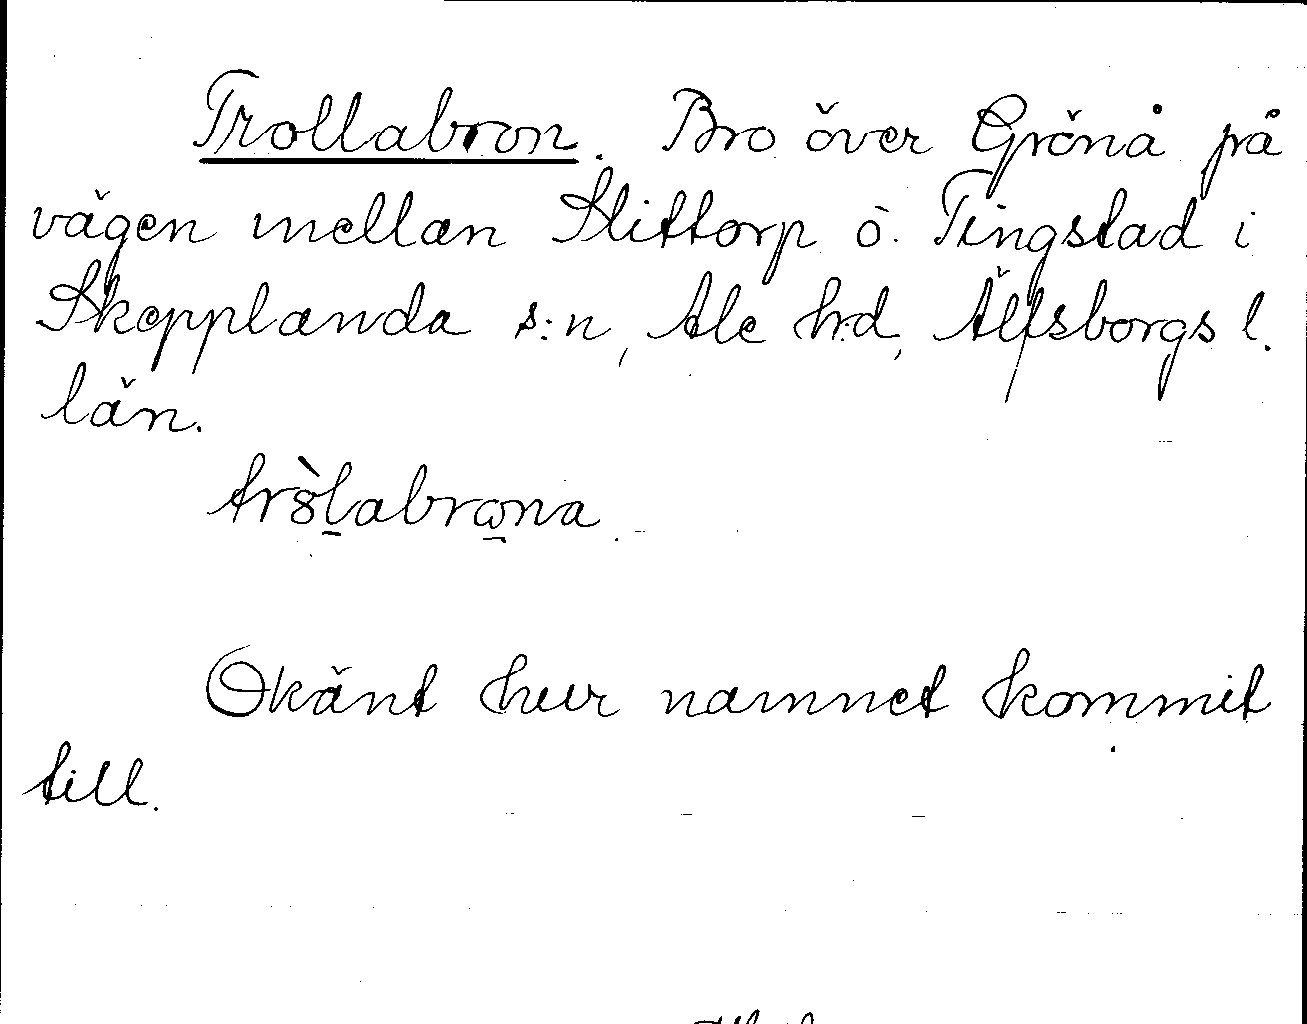 Trollabron. Bro över Grönå på
vägen mellan Slittorp o. Tingstad i
Skepplanda s:n, Ale h:d, Älfsborgs l.
län.
Okänt hur namnet kommit
till.